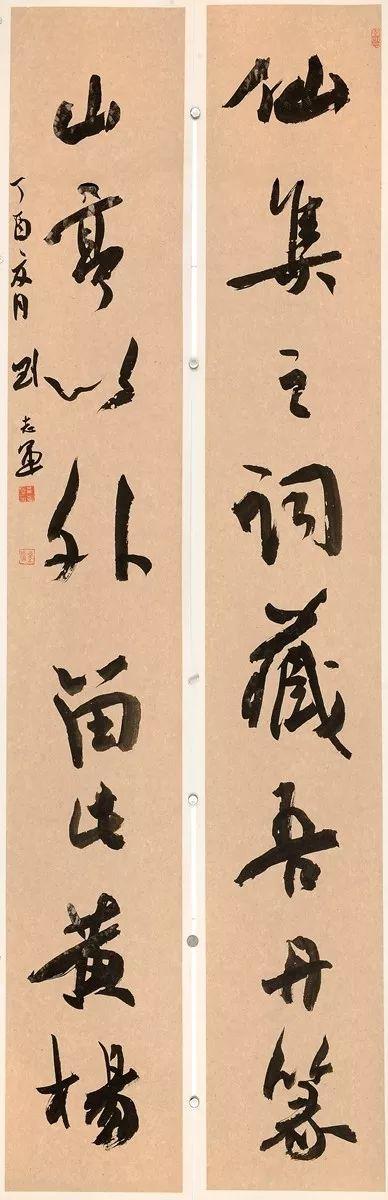 仙集之词藏吾丹篆
山亭以外留此黄杨
丁酉夏月 刘志军